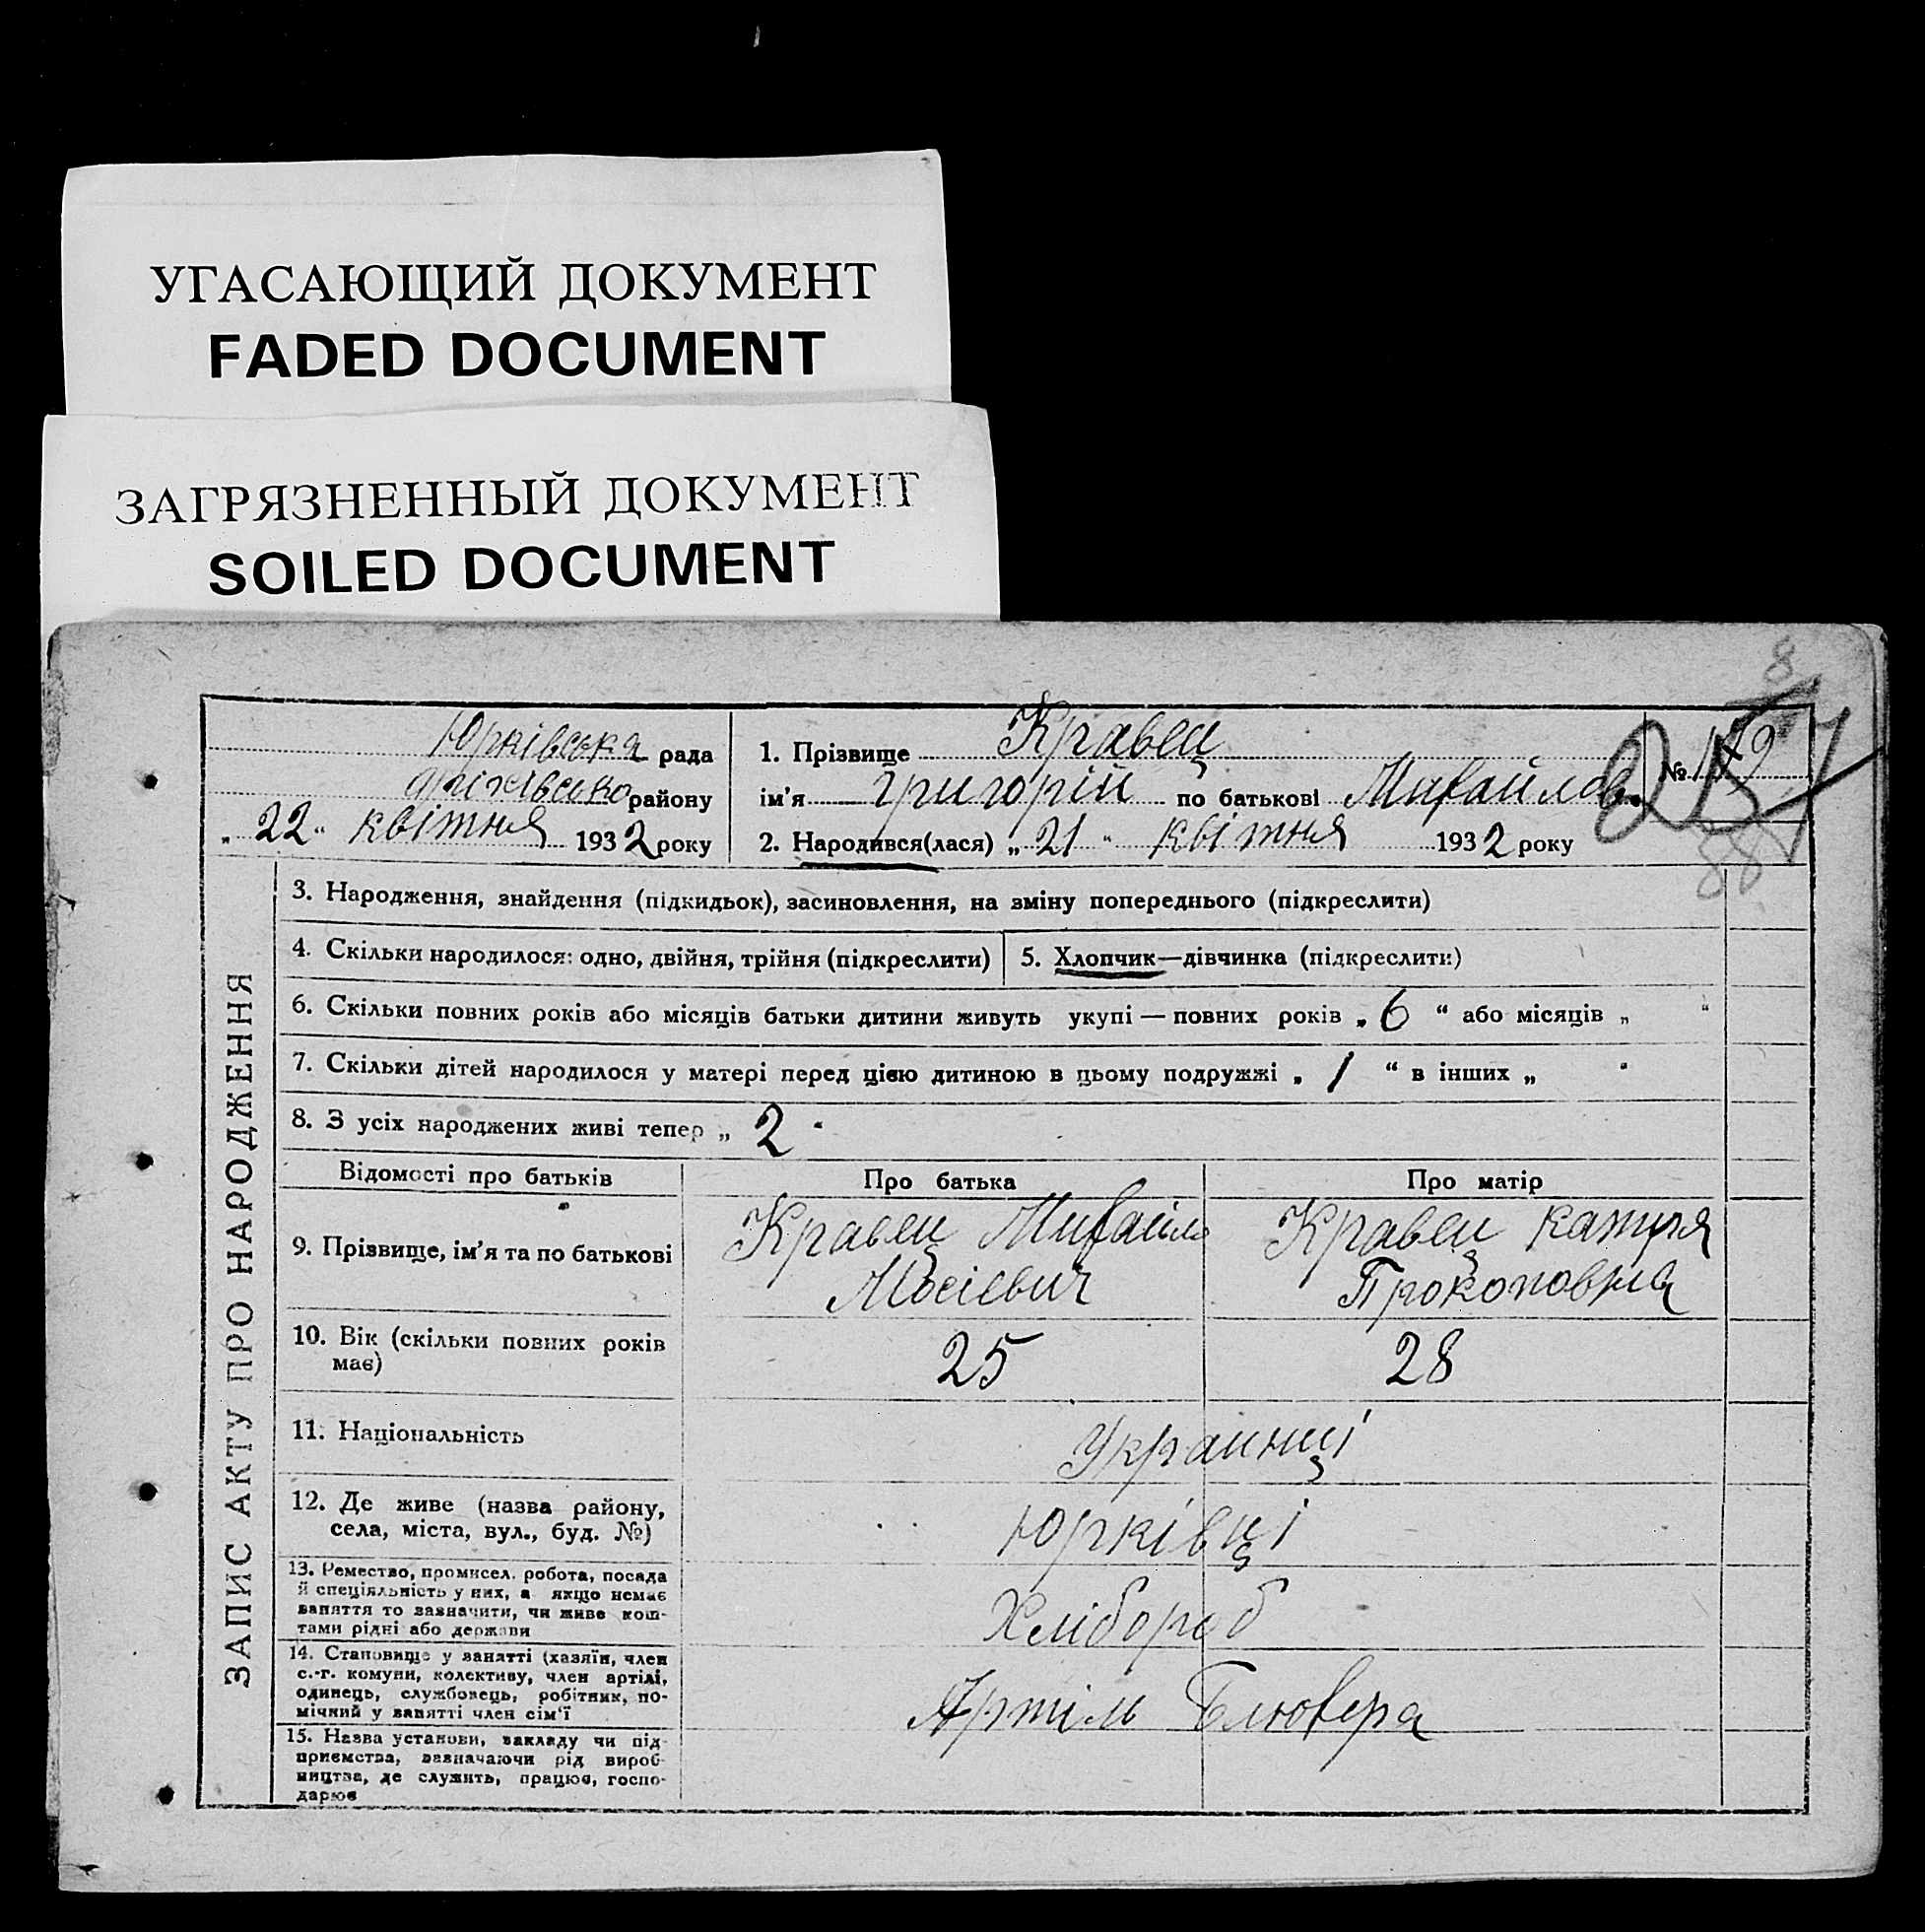 УГАСАЮЩИЙ ДОКУМЕНТ
FADED DOCUMENT
ЗАГРЯЗНЕННЫЙ ДОКУМЕНТ
SOILED DOCUMENT
8
Юрківська рада
району
„ 22 “ квітня 1932 року
1. Прізвище Кравец
ім’я Григорій по батькові Михайлов.
2. Народився(лася) „ 21 “ квітня 1932 року
№
88
ЗАПИС АКТУ ПРО НАРОДЖЕННЯ
3. Народження, знайдення (підкидьок), засиновлення, на зміну попереднього (підкреслити)
4. Скільки народилося: одно, двійня, трійня (підкреслити)
5. Хлопчик—дівчинка (підкреслити)
6. Скільки повних років або місяців батьки дитини живуть укупі — повних років „ 6 “ або місяців „ “
7. Скільки дітей народилося у матері перед цією дитиною в цьому подружжі „ 1 “ в інших „ “
8. З усіх народжених живі тепер „ 2 “
Відомості про батьків Про батька Про матір
9. Прізвище, ім’я та по батькові
Кравец Михайло
Мосієвич
Кравец Катря
Прокоповна
10. Вік (скільки повних років
має)
25 28
11. Національність
Украинці
12. Де живе (назва району,
села, міста, вул., буд. №)
Юрківці
13. Ремество, промисел, робота, посада
й спеціяльність у них, а якщо немає
заняття то зазначити, чи живе кош-
тами рідні або держави
Хлібороб
14. Становище у занятті (хазяїн, член
с.-г. комуни, колективу, член артілі,
одинець, службовець, робітник, по-
мічний у занятті член сім’ї
Артіль Блюхера
15. Назва установи, закладу чи під-
приємства, зазначаючи рід вироб-
ництва, де служить, працює, госпо-
дарює